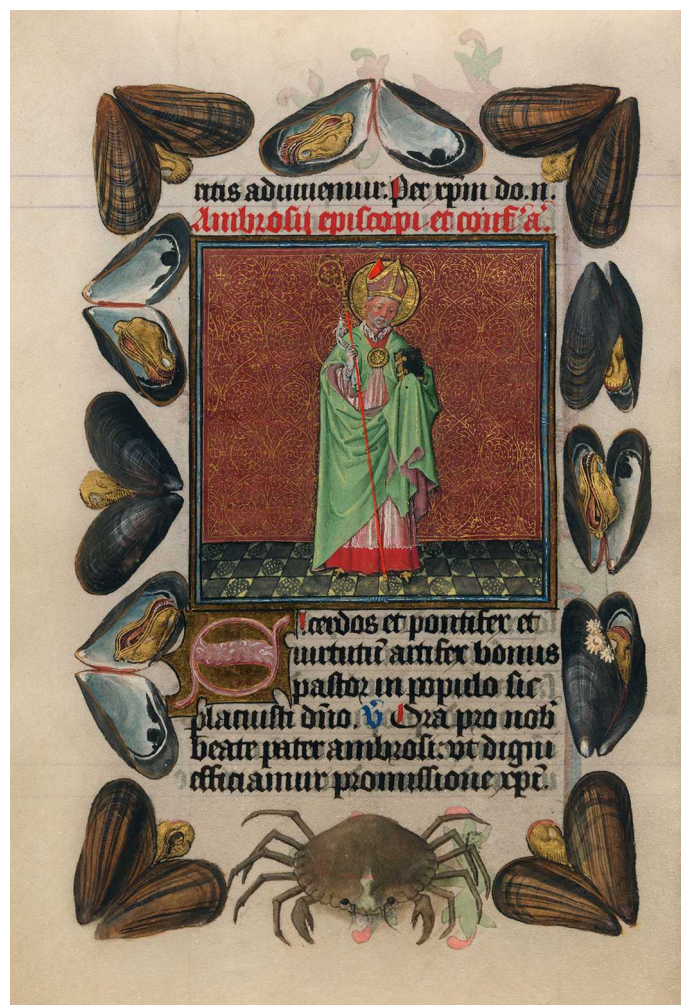 ritis adiuuemur. Per xpm do. n.
Ambrosij episcopi et conf. a.
Sacerdos et pontifex et
uirtutū artifex bonus
pastor in populo sic
placuisti dno. V Ora pro nob
beate pater ambrosi. vt digni
efficiamur promissione xpi.